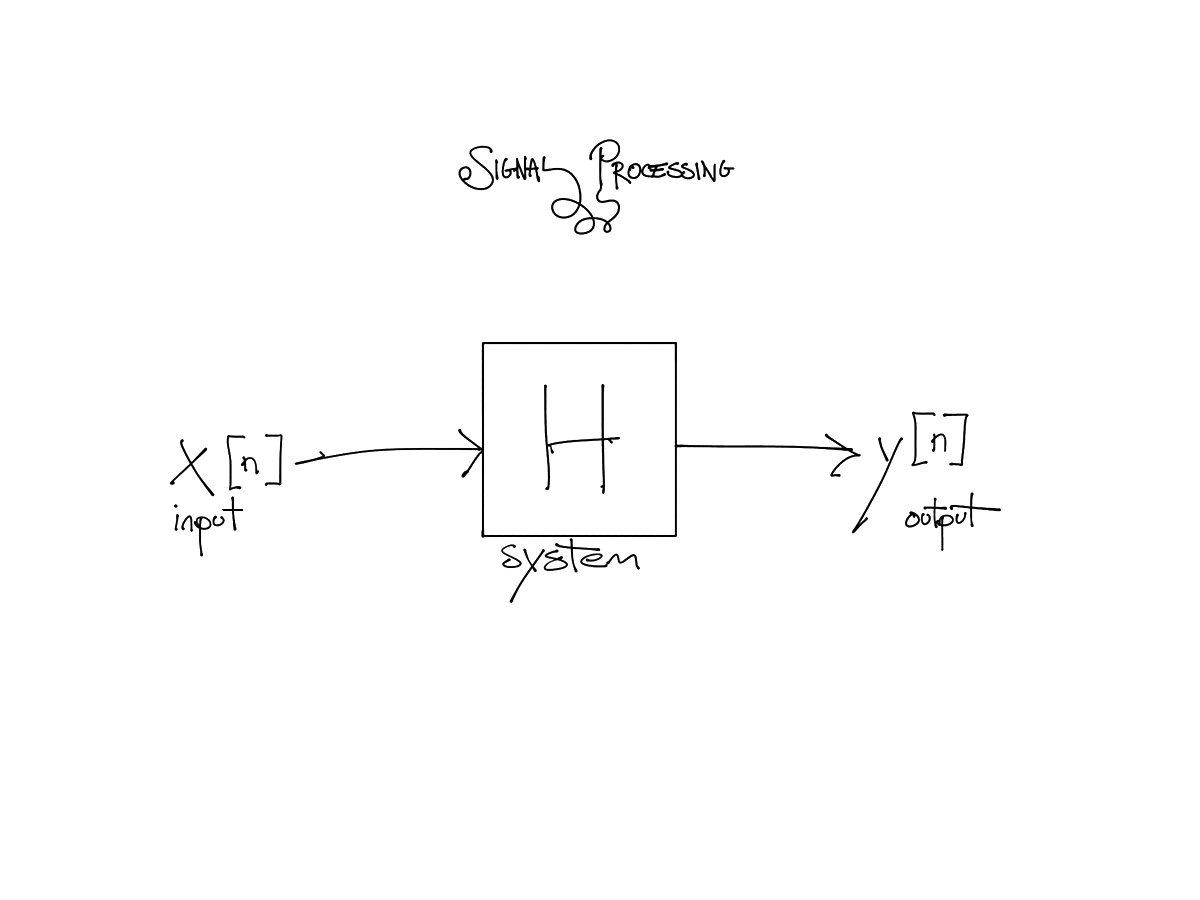 SIGNAL PROCESSING
X[n] H y[n]
input system output